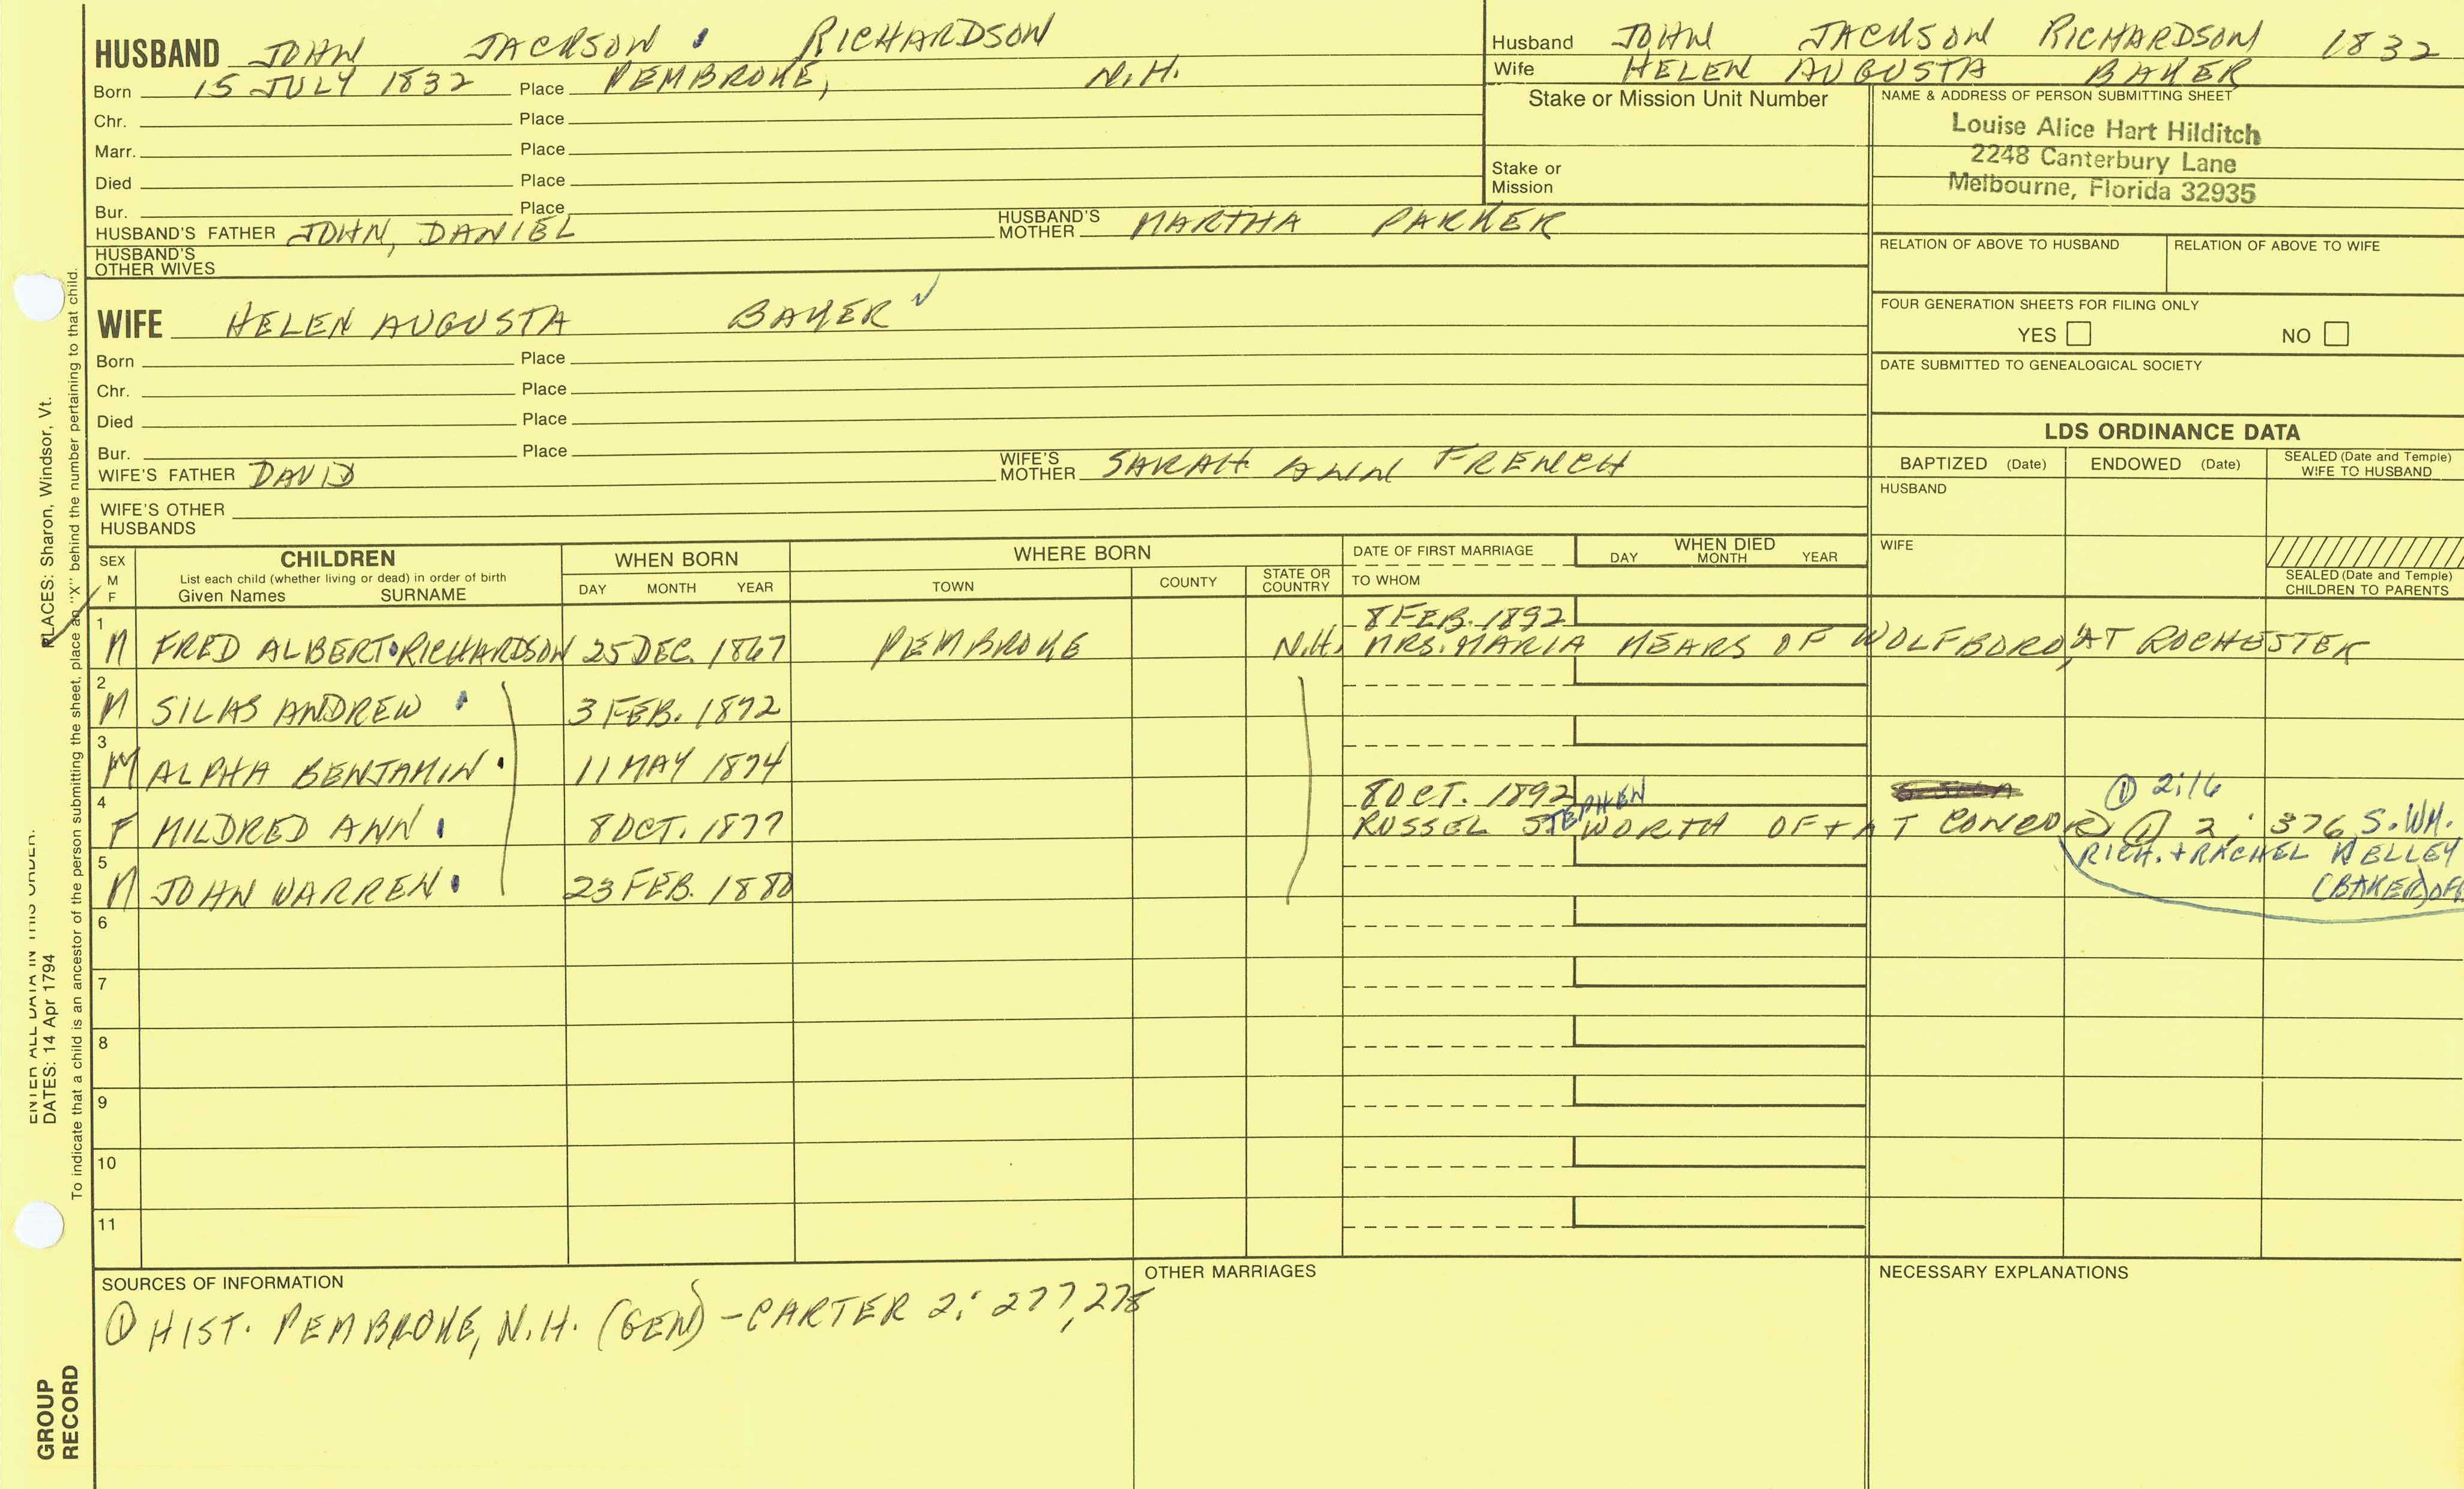 HUSBAND JOHN JACKSON RICHARDSON
Born 15 JULY 1832 Place PEMBROKE, N.H.
Chr. Place
Marr. Place
Died Place
Bur. Place
HUSBAND'S FATHER JOHN, DANIEL HUSBAND'S MOTHER MARTHA PARKER
HUSBAND'S OTHER WIVES
Husband JOHN JACKSON RICHARDSON 1832
Wife HELEN AUGUSTA BAKER
Stake or Mission Unit Number
Stake or Mission
NAME & ADDRESS OF PERSON SUBMITTING SHEET
Louise Alice Hart Hilditch
2248 Canterbury Lane
Melbourne, Florida 32935
RELATION OF ABOVE TO HUSBAND RELATION OF ABOVE TO WIFE
FOUR GENERATION SHEETS FOR FILING ONLY
YES NO
DATE SUBMITTED TO GENEALOGICAL SOCIETY
WIFE HELEN AUGUSTA BAKER
Born Place
Chr. Place
Died Place
Bur. Place
WIFE'S FATHER DAVID WIFE'S MOTHER SARAH ANN FRENCH
WIFE'S OTHER HUSBANDS
LDS ORDINANCE DATA
BAPTIZED (Date) ENDOWED (Date) SEALED (Date and Temple) WIFE TO HUSBAND
HUSBAND
WIFE
SEALED (Date and Temple) CHILDREN TO PARENTS
SEX M F
CHILDREN
List each child (whether living or dead) in order of birth
Given Names SURNAME
WHEN BORN
DAY MONTH YEAR
WHERE BORN
TOWN COUNTY STATE OR COUNTRY
DATE OF FIRST MARRIAGE
TO WHOM
WHEN DIED
DAY MONTH YEAR
8 FEB. 1892
1 M FRED ALBERT RICHARDSON 25 DEC. 1867 PEMBROKE N.H. MRS. MARIA MEARS OF WOLFBORO, AT ROCHESTER
2 M SILAS ANDREW 3 FEB. 1872
3 M ALPHA BENJAMIN 11 MAY 1874
8 OCT. 1892 ① 2:16
4 F MILDRED ANN 8 OCT. 1877 RUSSEL STEPHEN WORTH OF + AT CONCORD ① 2: 376 S. WM.
RICH. + RACHEL KELLEY
(BAKER) OF
5 M JOHN WARREN 23 FEB. 1880
6
7
8
9
10
11
SOURCES OF INFORMATION
① HIST. PEMBROKE, N.H. (GEN) - CARTER 2: 277, 278
OTHER MARRIAGES
NECESSARY EXPLANATIONS
PLACES: Sharon, Windsor, Vt.
To indicate that a child is an ancestor of the person submitting the sheet, place an "X" behind the number pertaining to that child.
ENTER ALL DATA IN THIS ORDER:
DATES: 14 Apr 1794
GROUP RECORD